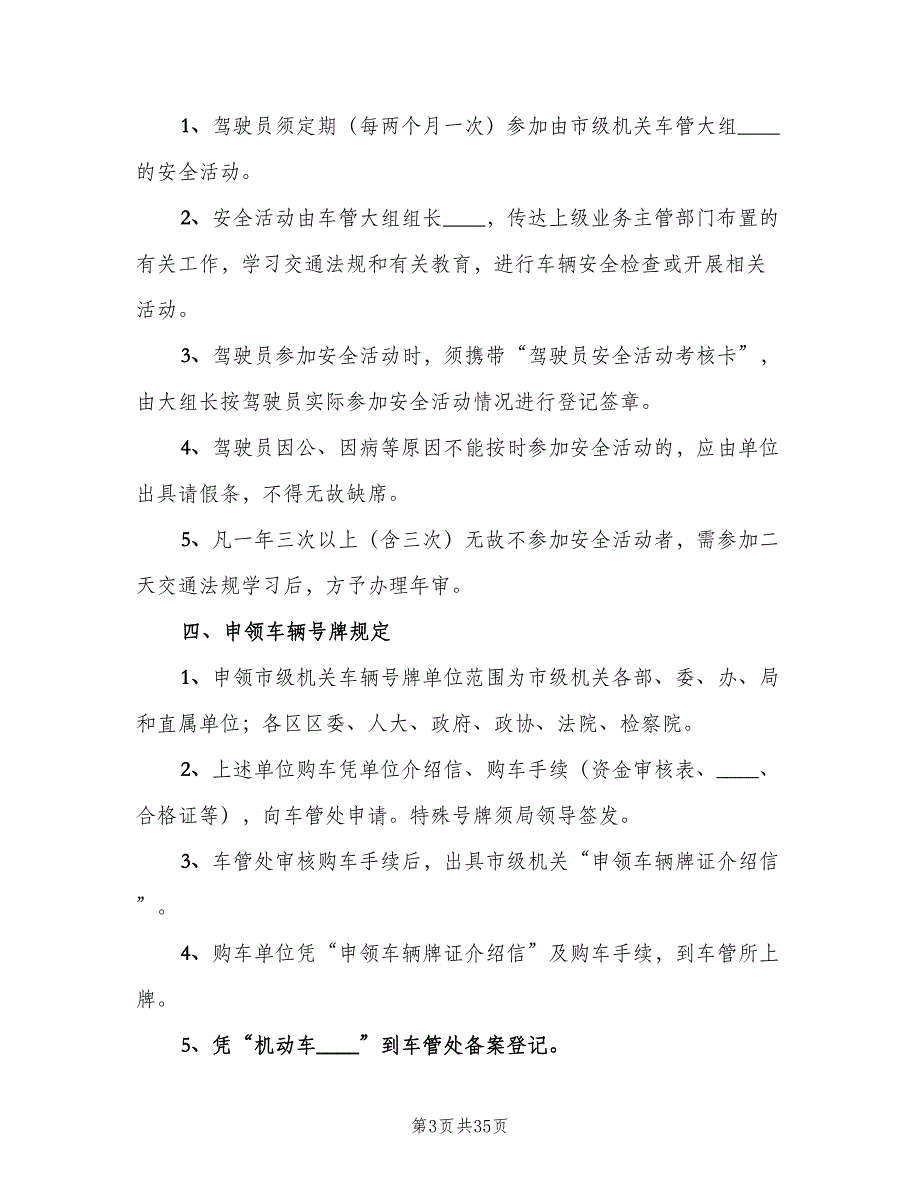 1、驾驶员须定期（每两个月一次）参加由市级机关车管大组____
的安全活动。
2、安全活动由车管大组组长____，传达上级业务主管部门布置的
有关工作，学习交通法规和有关教育，进行车辆安全检查或开展相关
活动。
3、驾驶员参加安全活动时，须携带“驾驶员安全活动考核卡”，
由大组长按驾驶员实际参加安全活动情况进行登记签章。
4、驾驶员因公、因病等原因不能按时参加安全活动的，应由单位
出具请假条，不得无故缺席。
5、凡一年三次以上（含三次）无故不参加安全活动者，需参加二
天交通法规学习后，方予办理年审。
四、申领车辆号牌规定
1、申领市级机关车辆号牌单位范围为市级机关各部、委、办、局
和直属单位；各区区委、人大、政府、政协、法院、检察院。
2、上述单位购车凭单位介绍信、购车手续（资金审核表、____、
合格证等），向车管处申请。特殊号牌须局领导签发。
3、车管处审核购车手续后，出具市级机关“申领车辆牌证介绍信
”。
4、购车单位凭“申领车辆牌证介绍信”及购车手续，到车管所上
牌。
5、凭“机动车____”到车管处备案登记。
第3页共35页